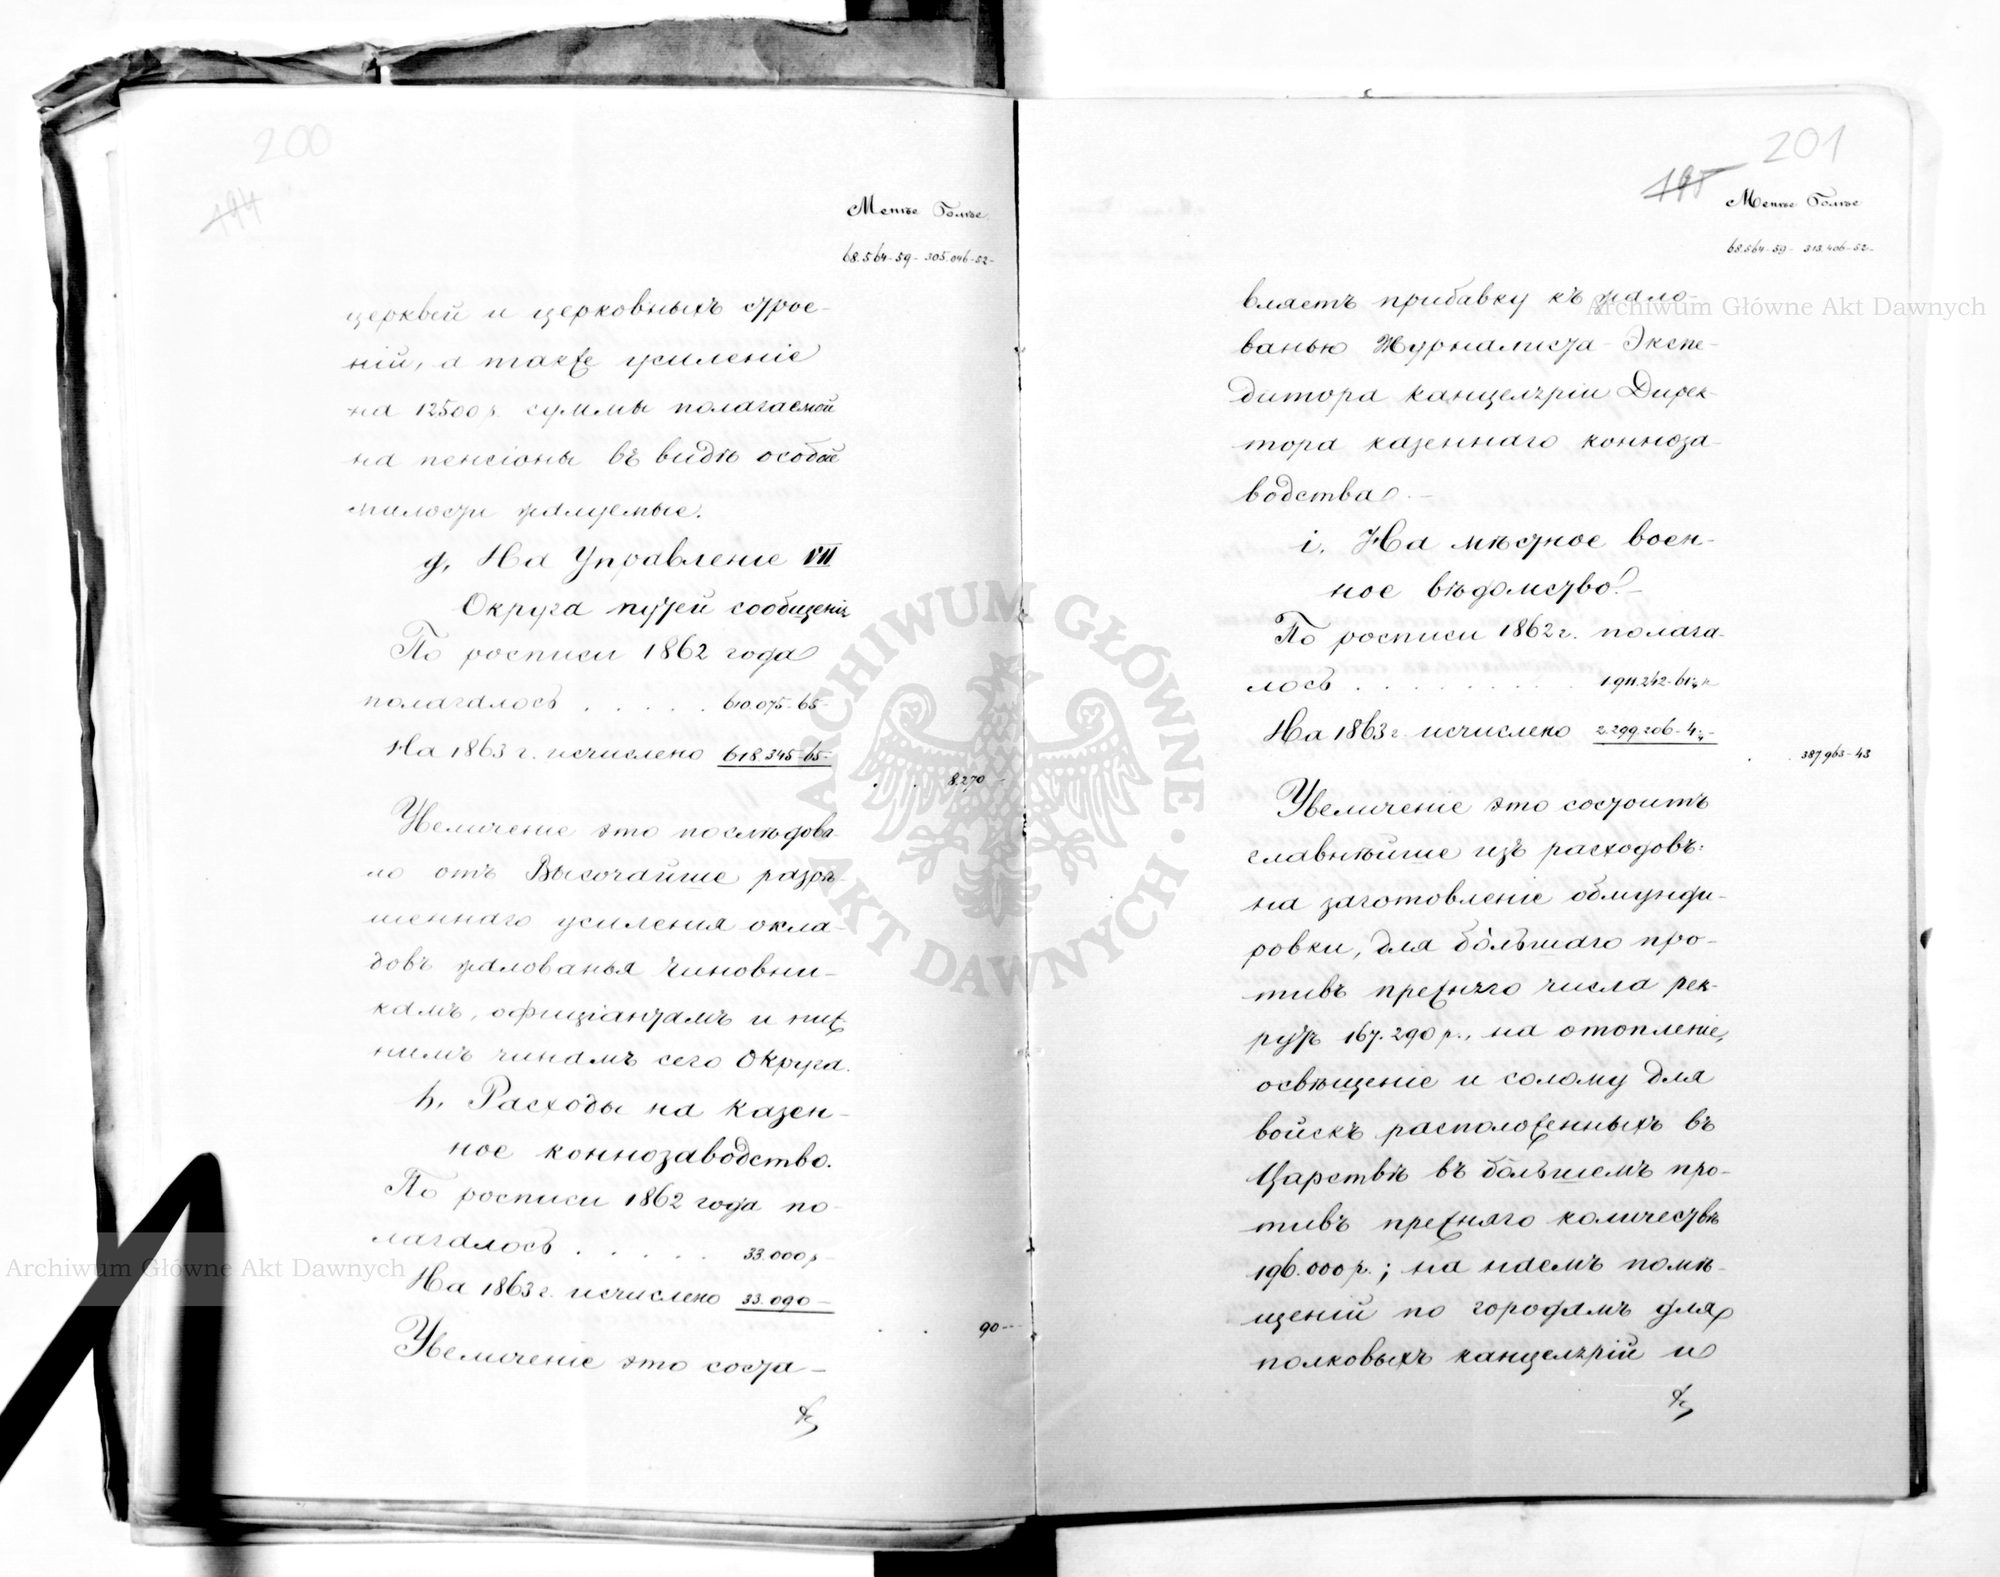 200
194
Менѣе Болѣе
68.564-59- 305.046-52-
церквей и церковныхъ строе-
ній, а также усиленіе
на 12500 р. суммы полагаемой
на пенсіоны въ видѣ особой
милости жалуемые.
g, На Управленіе VII
Округа путей сообщенія
По росписи 1862 года
полагалось . . . . . 610.075-65-
На 1863 г. исчислено 618.345-65-
. . 8.270
Увеличеніе это послѣдова-
ло отъ Высочайше разрѣ-
шеннаго усиленія окла-
довъ жалованья чиновни-
камъ, офиціантамъ и ниж-
нимъ чинамъ сего Округа.
h. Расходы на казен-
ное коннозаводство.
По росписи 1862 года по-
лагалось . . . . . 33.000 р
На 1863 г. исчислено 33.090 -
. . 90 -
Увеличеніе это соста-
201
195
Менѣе Болѣе
68.564-59- 313.406-52-
вляетъ прибавку къ жало-
ванью Журналиста-Экспе-
дитора канцеляріи Дирек-
тора казеннаго конноза-
водства. -
i. На мѣстное воен-
ное вѣдомство. -
По росписи 1862 г. полага-
лось . . . . . . . . 1.911.242-61
На 1863 г. исчислено 2.299.206-4
. . 387.963-43
Увеличеніе это состоитъ
главнѣйше изъ расходовъ:
на заготовленіе обмунди-
ровки, для бо́льшаго про-
тивъ прежняго числа рек-
рутъ 167.290 р., на отопленіе,
освѣщеніе и солому для
войскъ расположенныхъ въ
Царствѣ въ бо́льшемъ про-
тивъ прежняго количествѣ
196.000 р.; на наемъ помѣ-
щеній по городамъ для
полковыхъ канцелярій и
Archiwum Główne Akt Dawnych
Archiwum Główne Akt Dawnych
ARCHIWUM GŁÓWNE · AKT DAWNYCH ·